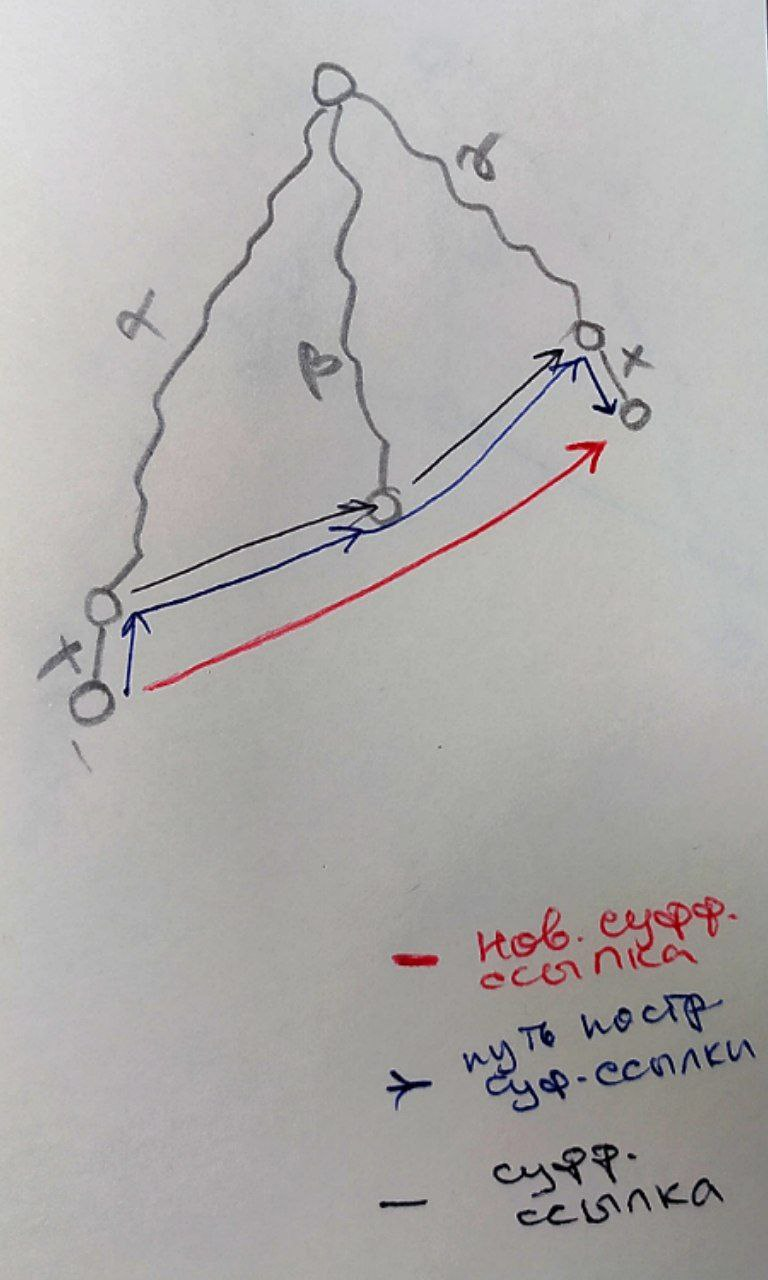 γ
α
β
x
x
нов. суфф.
ссылка
путь постр
суф-ссылки
суфф.
ссылка